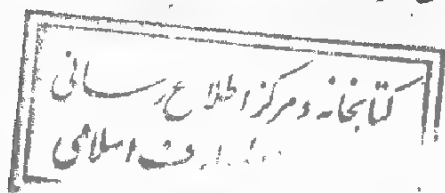 کتابخانه و مرکز اطلاع رسانی
اسلامی